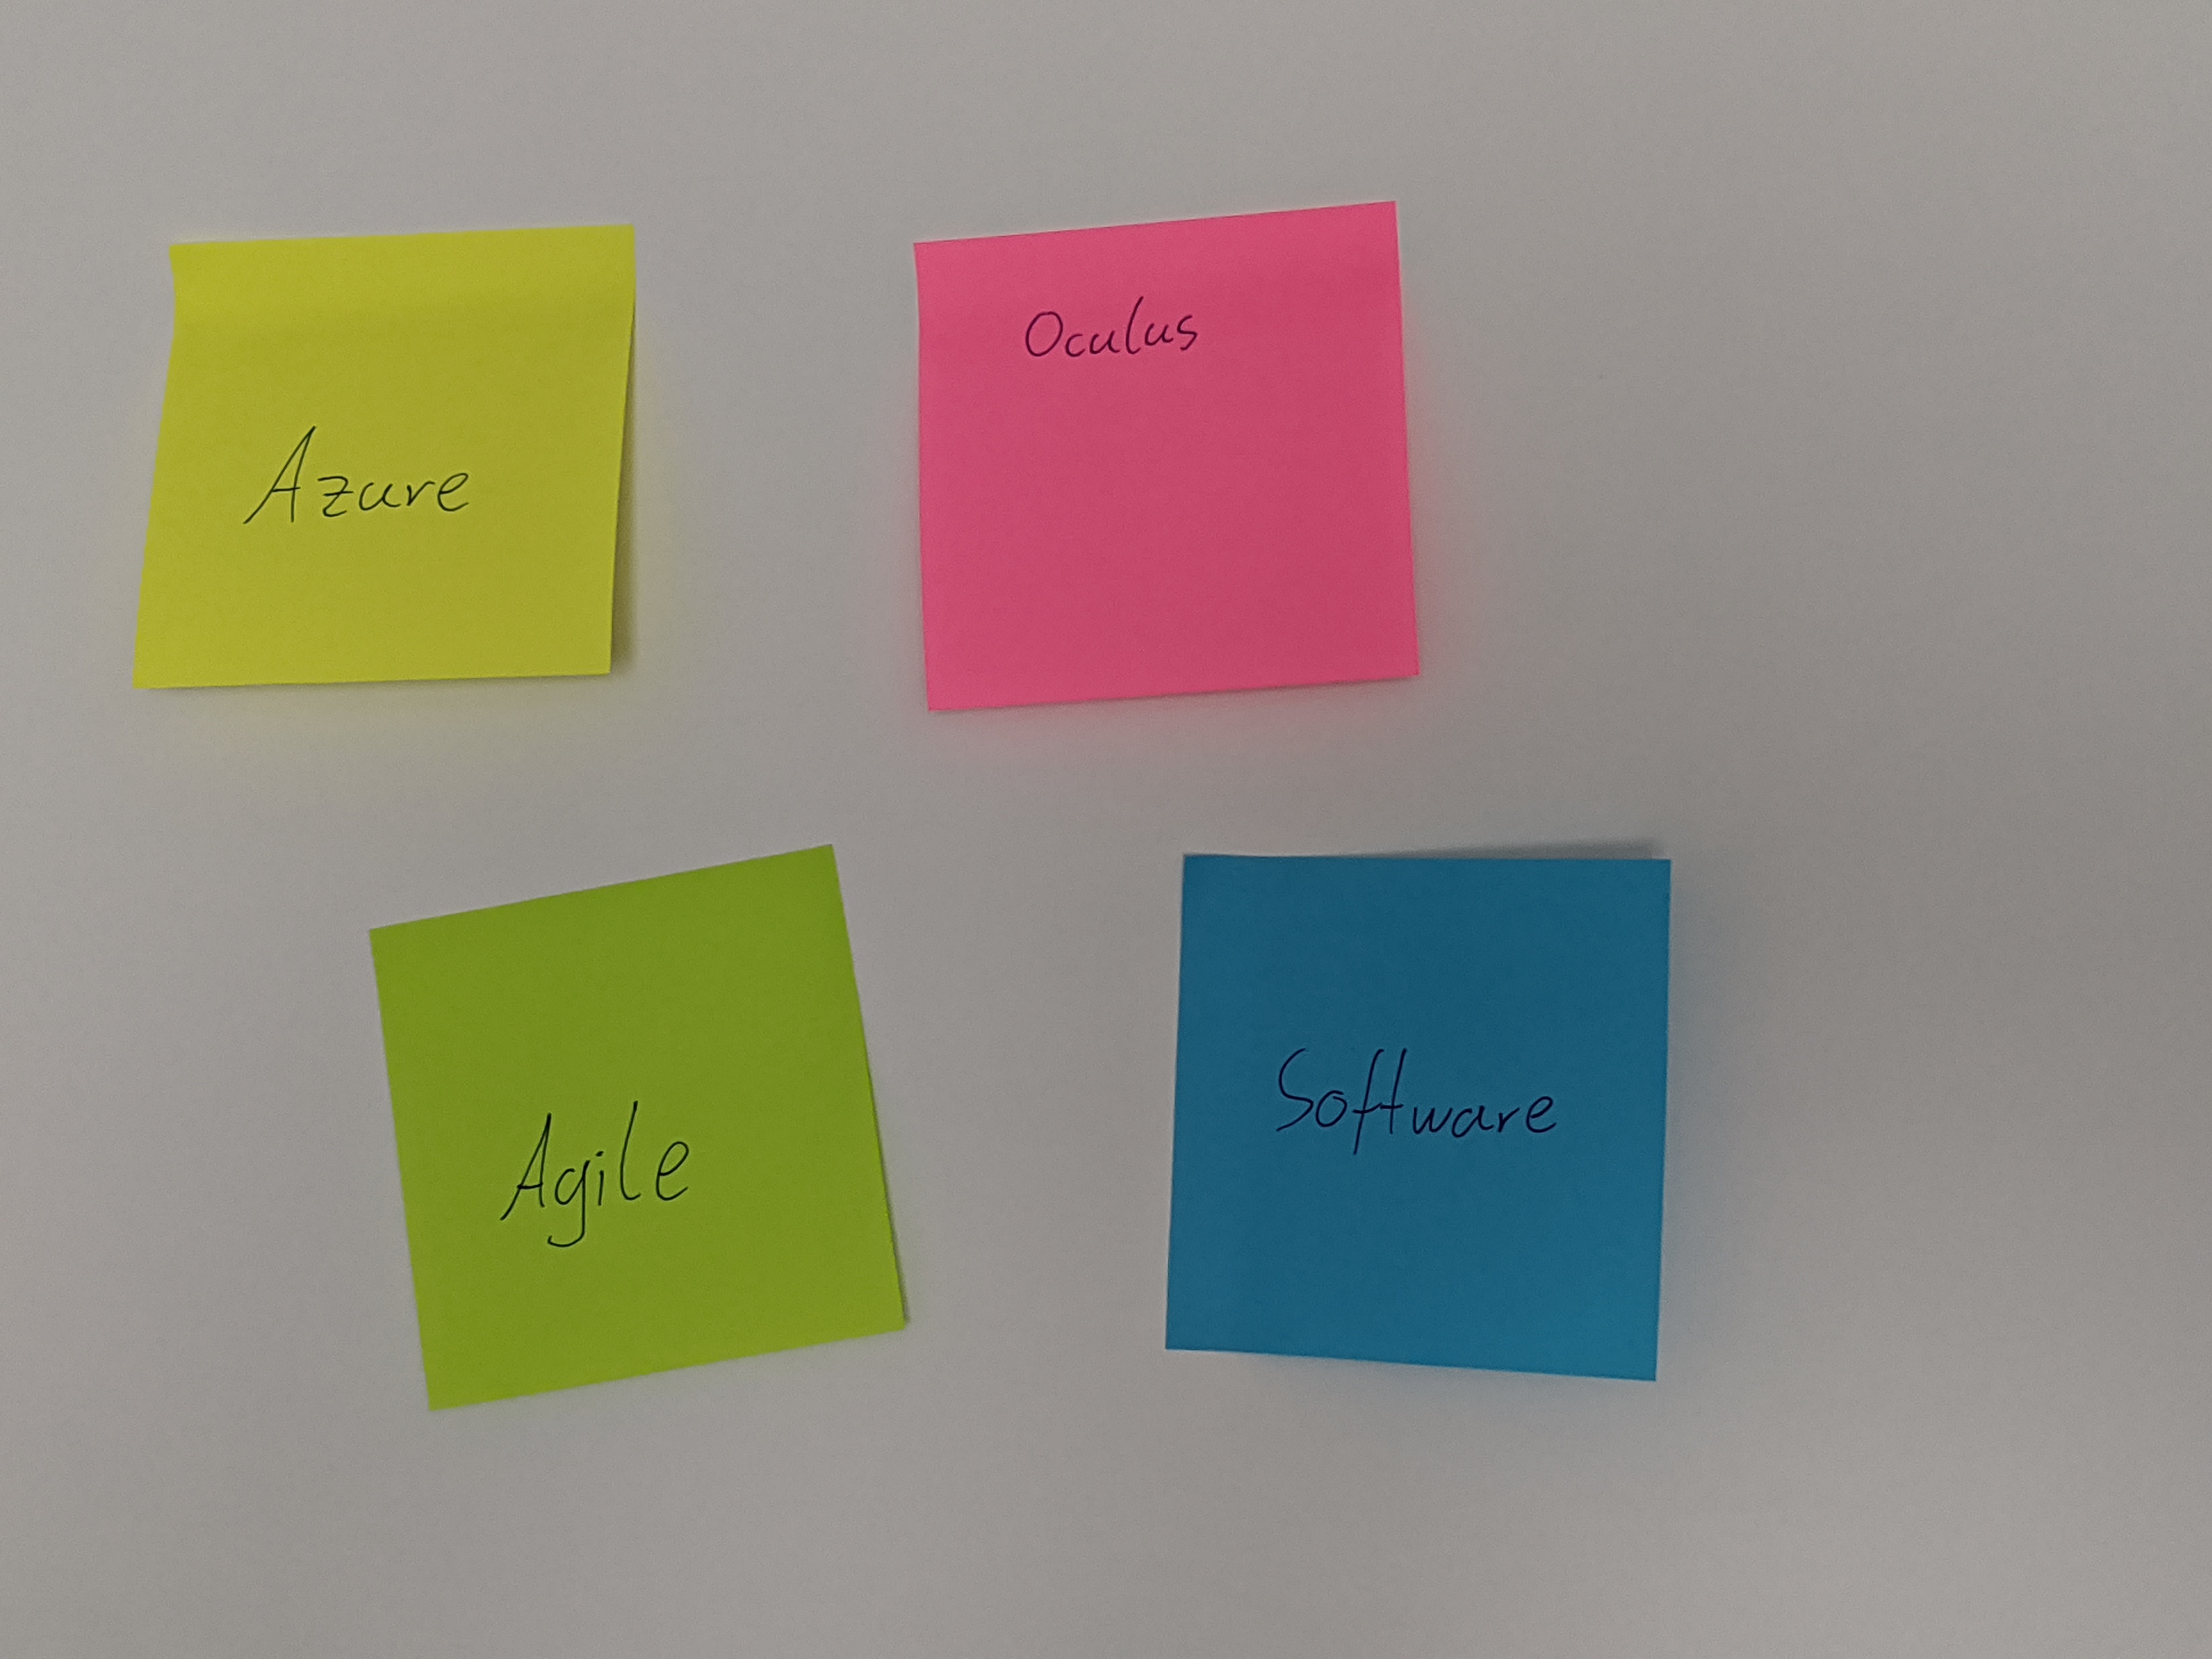 Azure
Oculus
Agile
Software